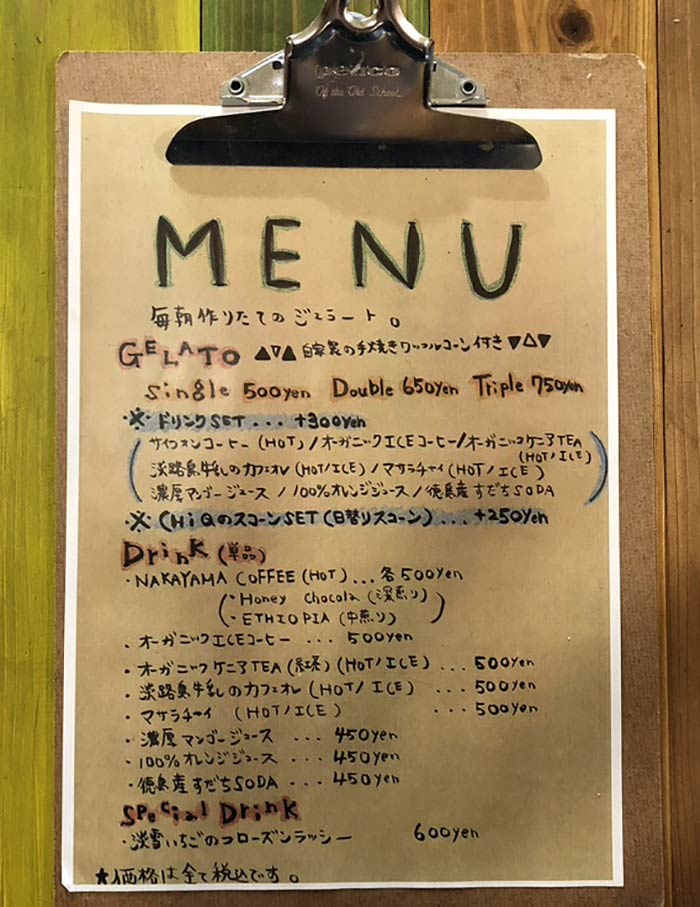 penco
Of the Old School.
MENU
毎朝作りたてのジェラート。
GELATO ▲▽▲ 自家製の手焼きワッフルコーン付き ▼△▼
Single 500yen Double 650yen Triple 750yen
・※ドリンクSET ... +300yen
(サイフォンコーヒー(HOT)/オーガニックICEコーヒー/オーガニックケニアTEA
(HOT/ICE)
淡路島牛乳のカフェオレ(HOT/ICE)/マサラチャイ(HOT/ICE)
濃厚マンゴージュース/100%オレンジジュース/徳島産すだちSODA)
・※CHiQのスコーンSET(日替りスコーン)...+250yen
Drink(単品)
・NAKAYAMA COFFEE(HOT)...各500yen
(・Honey chocola(深煎り)
・ETHIOPIA(中煎り))
・オーガニックICEコーヒー ... 500yen
・オーガニックケニアTEA(紅茶)(HOT/ICE) ... 500yen
・淡路島牛乳のカフェオレ(HOT/ICE) ... 500yen
・マサラチャイ (HOT/ICE) ... 500yen
・濃厚マンゴージュース ... 450yen
・100%オレンジジュース ... 450yen
・徳島産すだちSODA ... 450yen
Special Drink
・淡雪いちごのフローズンラッシー 600yen
★価格は全て税込です。